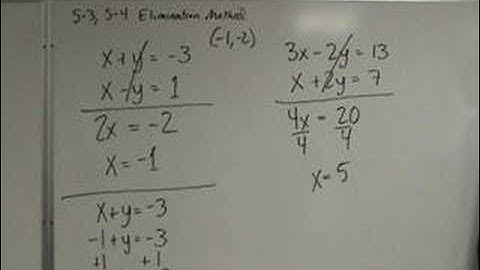 5-3, 5-4 Elimination Method
(-1,-2)
x+y=-3
x-y=1
2x=-2
x=-1
x+y=-3
-1+y=-3
+1 +1
3x-2y=13
x+2y=7
4x = 20
4 4
x=5